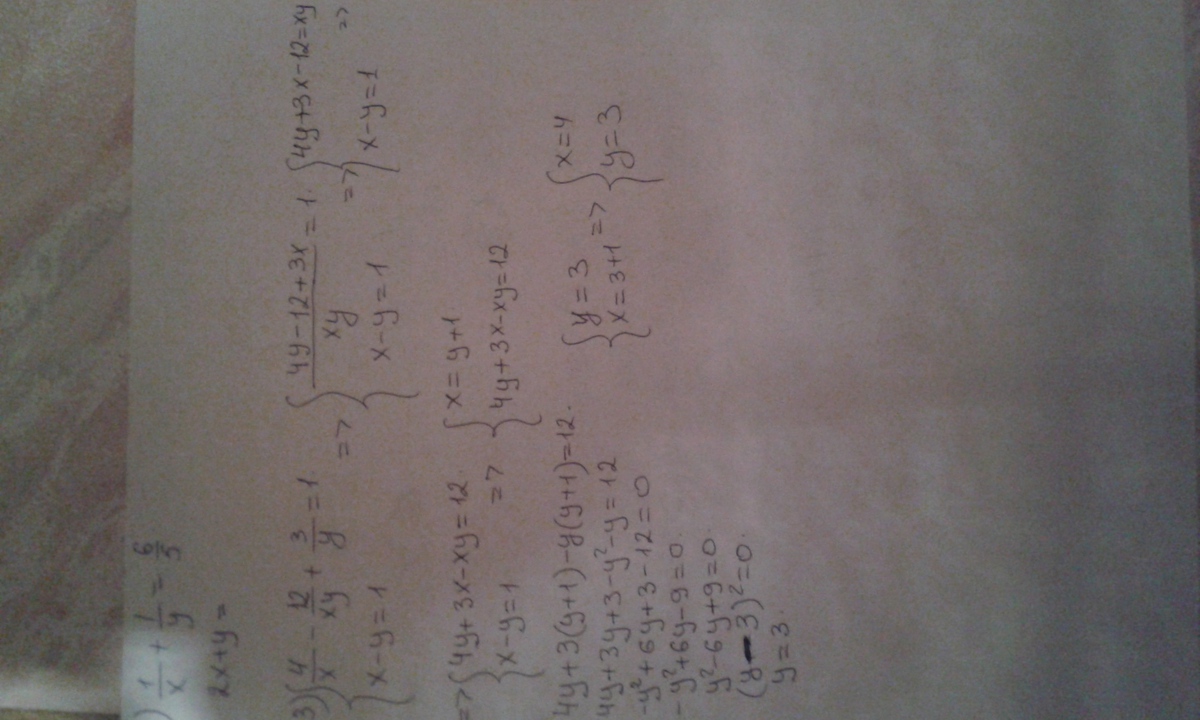 ) 1/x + 1/y = 6/5
2x+y=
3) { 4/x - 12/xy + 3/y = 1 => { (4y-12+3x)/xy = 1. => { 4y+3x-12=xy =>
{ x-y=1 { x-y=1 { x-y=1
=> { 4y+3x-xy=12 => { x=y+1
{ x-y=1 { 4y+3x-xy=12
4y+3(y+1)-y(y+1)=12.
4y+3y+3-y²-y=12
-y²+6y+3-12=0
-y²+6y-9=0.
y²-6y+9=0
(y-3)²=0.
y=3.
{ y=3 => { x=4
{ x=3+1 { y=3